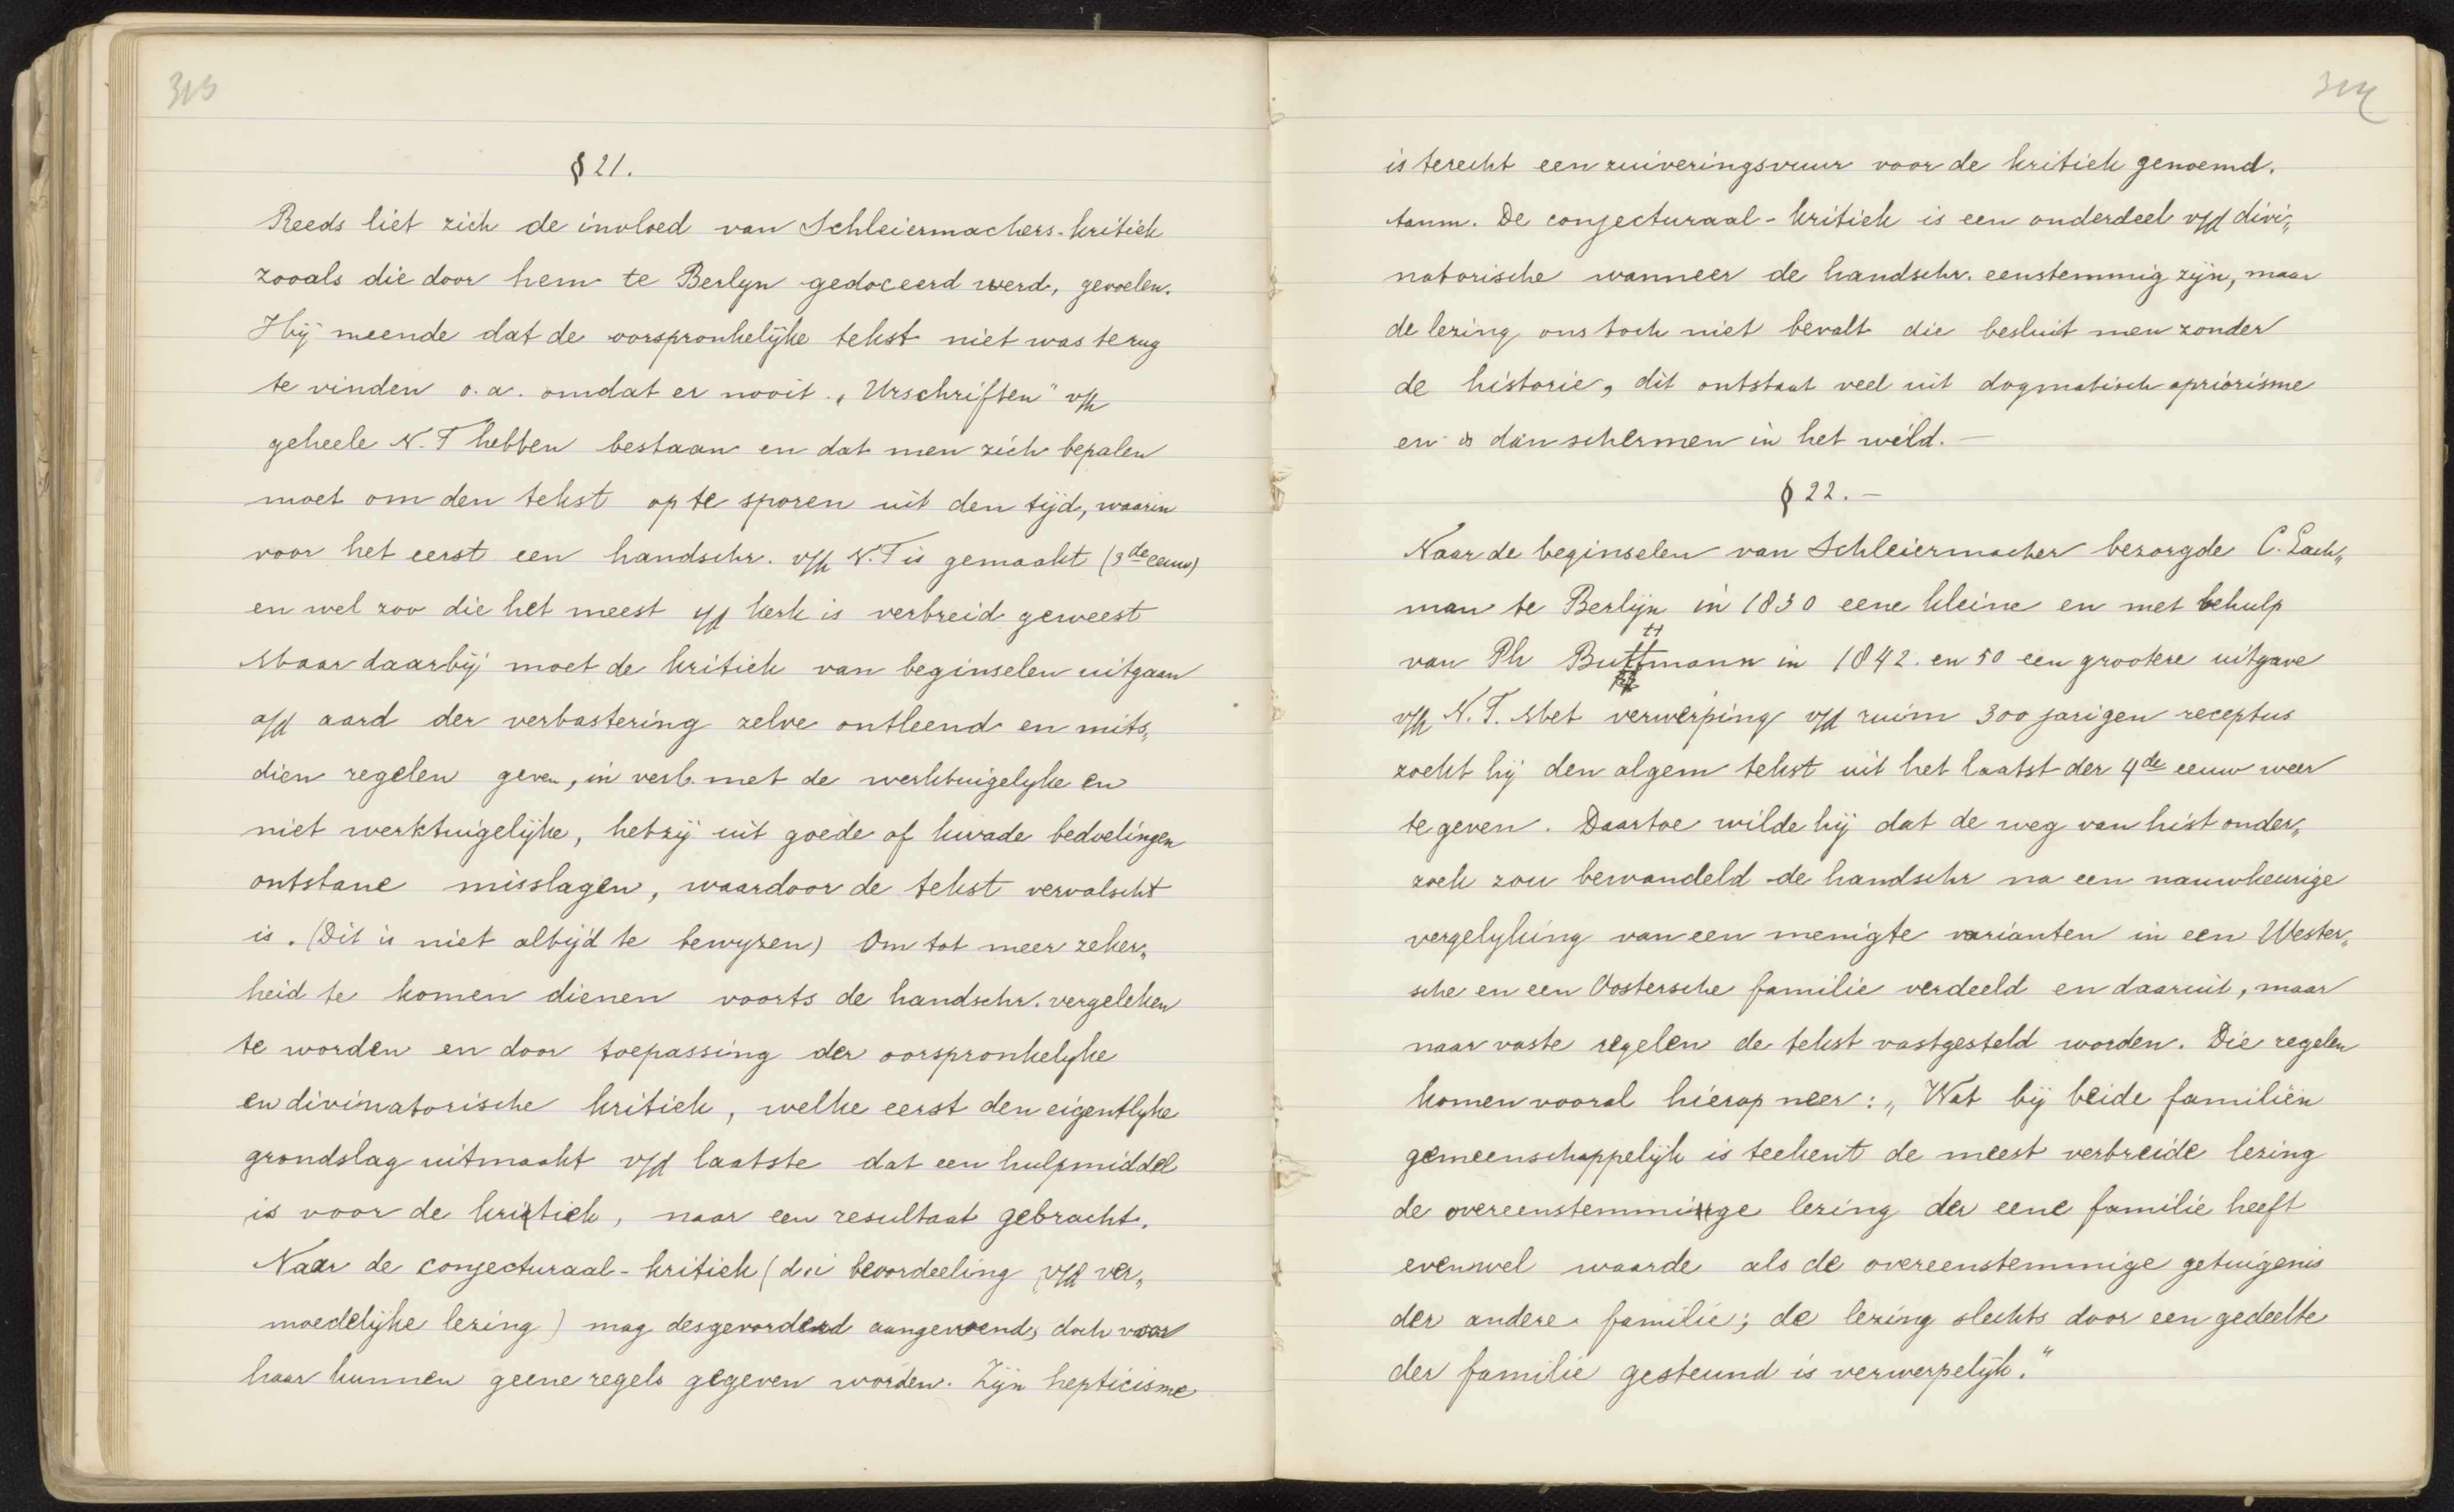 313
§ 21.
Reeds liet zich de invloed van Schleiermachers-kritiek
zooals die door hem te Berlyn gedoceerd werd, gevoelen.
Hij meende dat de oorspronkelijke tekst niet was terug
te vinden o.a. omdat er nooit „Urschriften" v/h
geheele N.T hebben bestaan en dat men zich bepalen
moet om den tekst op te sporen uit den tijd, waarin
voor het eerst een handschr. v/h N.T is gemaakt (3de eeuw)
en wel zoo die het meest i/d kerk is verbreid geweest
Maar daarbij moet de kritiek van beginselen uitgaan
a/d aard der verbastering zelve ontleend en mits„
dien regelen geven, in verb. met de werktuigelyke en
niet werktuigelijke, hetzij uit goede of kwade bedoelingen
ontstane misslagen, waardoor de tekst vervalscht
is. (Dit is niet altijd te bewyzen) Om tot meer zeker„
heid te komen dienen voorts de handschr. vergeleken
te worden en door toepassing der oorspronkelyke
en divinatorische kritiek, welke eerst den eigentlyke
grondslag uitmaakt v/d laatste dat een hulpmiddel
is voor de kritiek, naar een resultaat gebracht.
Naar de conjecturaal-kritiek (d.i beoordeeling v/d ver„
moedelijke lezing) mag desgevorderd aangewend, doch voor
haar kunnen geene regels gegeven worden. Zijn hepticisme
314
is terecht een zuiveringsvuur voor de kritiek genoemd.
tanm. De conjecturaal-kritiek is een onderdeel v/d divi„
natorische wanneer de handschr. eenstemmig zijn, maar
de lezing ons toch niet bevalt die besluit men zonder
de historie, dit ontstaat veel uit dogmatisch apriorisme
en is dan schermen in het wild. —
§ 22. —
Naar de beginselen van Schleiermacher bezorgde C. Lach„
man te Berlijn in 1830 eene kleine en met behulp
van Ph Buttmann in 1842 en 50 een grootere uitgave
v/h N.T. Met verwerping v/d ruim 300 jarigen receptus
zocht hij den algem tekst uit het laatst der 4de eeuw weer
te geven. Daartoe wilde hij dat de weg van hist onder„
zoek zou bewandeld de handschr na een nauwkeurige
vergelyking van een menigte varianten in een Wester„
sche en een Oostersche familie verdeeld en daaruit, maar
naar vaste regelen de tekst vastgesteld worden. Die regelen
komen vooral hierop neer: „Wat bij beide familiën
gemeenschappelijk is teekent de meest verbreide lezing
de overeenstemminge lezing der eene familie heeft
evenwel waarde als de overeenstemmige getuigenis
der andere familie; de lezing slechts door een gedeelte
der familie gesteund is verwerpelijk."